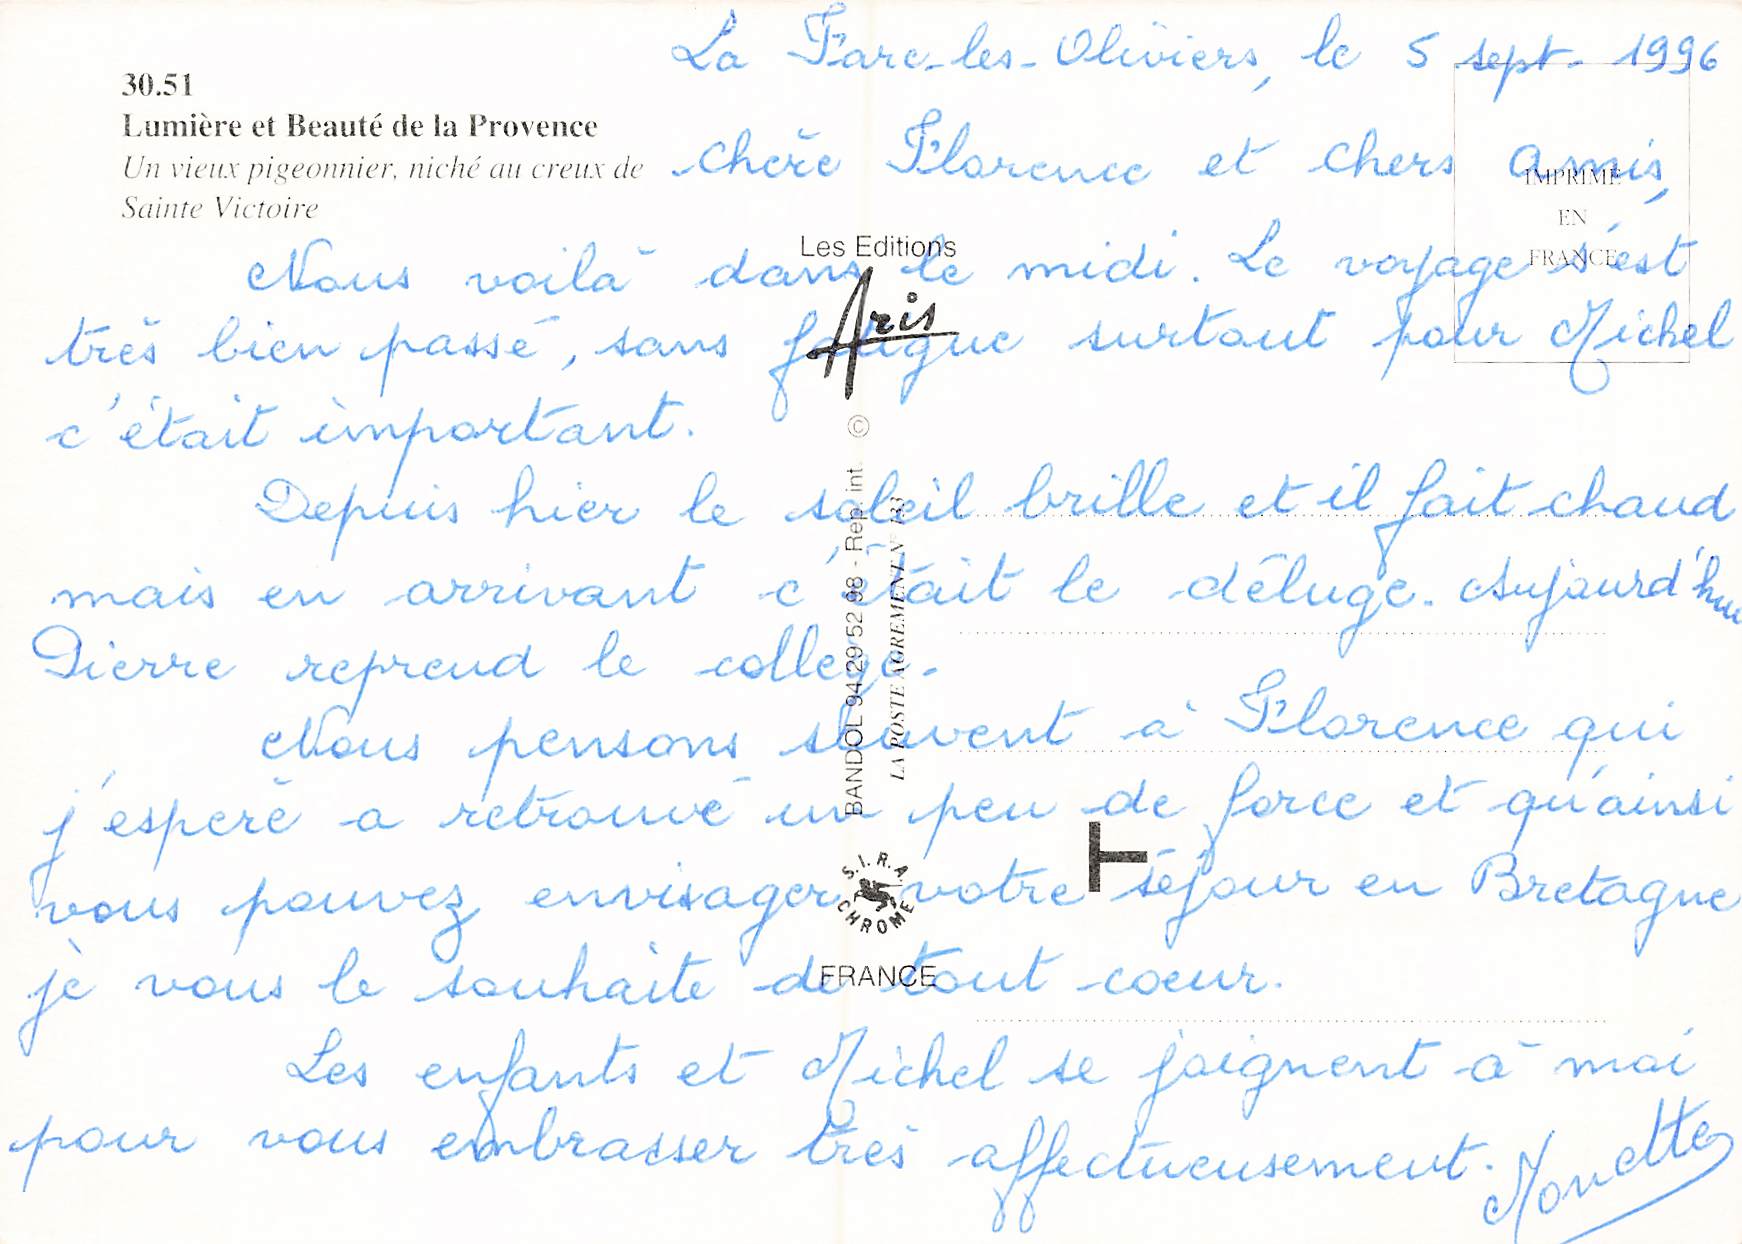 La Fare-les-Oliviers, le 5 sept. 1996
30.51
Lumière et Beauté de la Provence
Un vieux pigeonnier, niché au creux de
Sainte Victoire
IMPRIMÉ
EN
FRANCE
chère Florence et chers amis,
Les Editions
Aris
Nous voilà dans le midi. Le voyage s'est
très bien passé, sans fatigue surtout pour Michel
c'était important.
Depuis hier le soleil brille et il fait chaud
mais en arrivant c'était le déluge. Aujourd'hui
Pierre reprend le collège.
Nous pensons souvent à Florence qui
j'espère a retrouvé un peu de force et qu'ainsi
vous pouvez envisager votre séjour en Bretagne
je vous le souhaite de tout coeur.
Les enfants et Michel se joignent à moi
pour vous embrasser très affectueusement.
BANDOL 94 29 52 98 - Rep. int. ©
LA POSTE AGREMENT N° 133
S.I.R.A.
CHROME
FRANCE